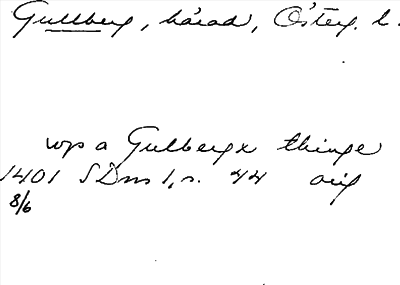 Gullberg, härad, Österg. l.
wp a Gulbergx thinge
1401 SDns 1, n. 44 orig
8/6